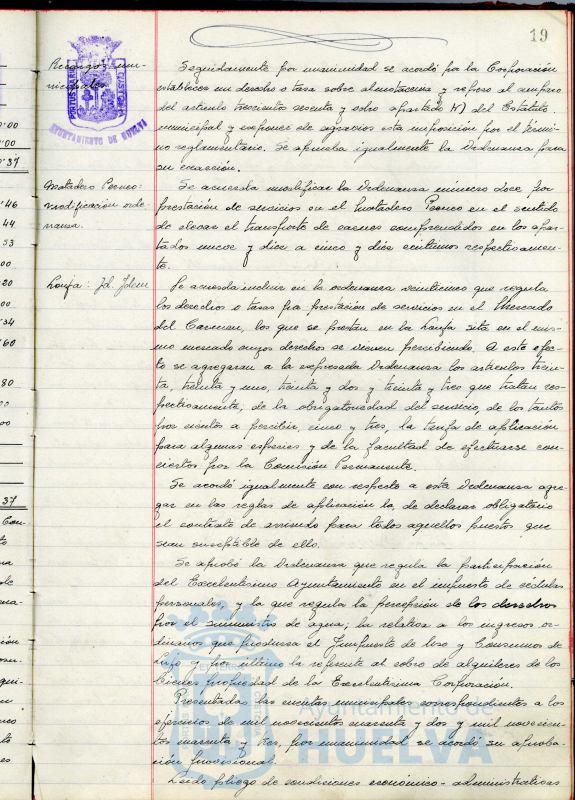 19
Recargos mu-
nicipales
PORTUS MARIS ET TERRAE CUSTODIA
AYUNTAMIENTO DE HUELVA
Seguidamente por unanimidad se acordó por la Corporación
establecer un derecho o tasa sobre almotacenia y repeso al amparo
del artículo trescientos sesenta y ocho apartado h) del Estatuto
municipal y exponer de agravios esta imposición por el térmi-
no reglamentario. Se aprueba igualmente la Ordenanza para
su exacción.
Matadero Porcino:
modificación orde-
nanza.
Se acuerda modificar la Ordenanza número doce por
prestación de servicios en el Matadero Porcino en el sentido
de elevar el transporte de carnes comprendidos en los apar-
tados nueve y diez a cinco y diez céntimos respectivamen-
te.
Lonja: Id. Idem
Se acuerda incluir en la ordenanza veinticinco que regula
los derechos o tasas por prestación de servicios en el Mercado
del Carmen, los que se prestan en la Lonja sita en el mis-
mo mercado cuyos derechos se vienen percibiendo. A este efec-
to se agregaran a la expresada Ordenanza los articulos trein-
ta, treinta y uno, treinta y dos y treinta y tres que tratan res-
pectivamente, de la obligatoriedad del servicio de los tantos
por ciento a percibir, cinco y tres, la tarifa de aplicación
para algunas especies y de la facultad de efectuarse con-
ciertos por la Comisión Permanente.
Se acordó igualmente con respecto a esta Ordenanza agre-
gar en las reglas de aplicación la de declarar obligatorio
el contrato de arriendo para todos aquellos puestos que
sean susceptible de ello.
Se aprobó la Ordenanza que regula la participación
del Excelentisimo Ayuntamiento en el impuesto de cédulas
personales, y la que regula la percepción de los derechos
por el suministro de agua; la relativa a los ingresos or-
dinarios que produzca el Impuesto de Uso y Consumos de
Lujo y por último la referente al cobro de alquileres de los
bienes propiedad de la Excelentisima Corporación.
Presentadas las cuentas municipales correspondientes a los
ejercicios de mil novecientos cuarenta y dos y mil novecien-
tos cuarenta y tres, por unanimidad se acordó su aproba-
ción provisional.
Leido pliego de condiciones económico-administrativas
Ayuntamiento de
HUELVA